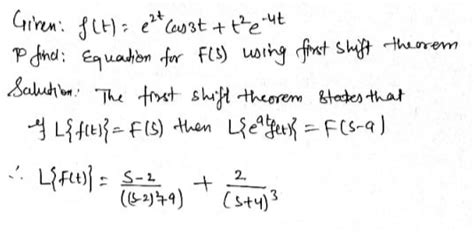 Given: f(t) = e^{2t} Cos3t + t^2 e^{-4t}
To find: Equation for F(s) using first shift theorem
Salution: The first shift theorem states that
if L{f(t)} = F(S) then L{e^{at}f(t)} = F(S-a)
∴ L{f(t)} = \frac{S-2}{((S-2)^2+9)} + \frac{2}{(S+4)^3}